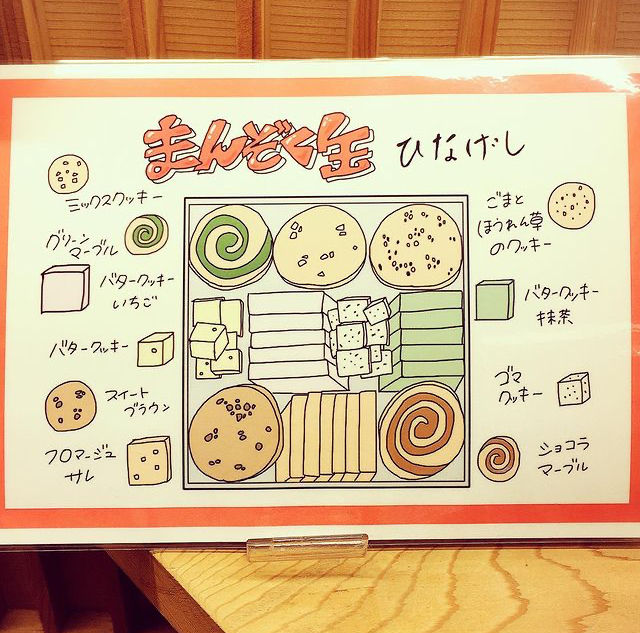 まんぞく缶 ひなげし
ミックスクッキー
グリーン
マーブル
バタークッキー
いちご
バタークッキー
スイート
ブラウン
フロマージュ
サレ
ごまと
ほうれん草
のクッキー
バタークッキー
抹茶
ゴマ
クッキー
ショコラ
マーブル